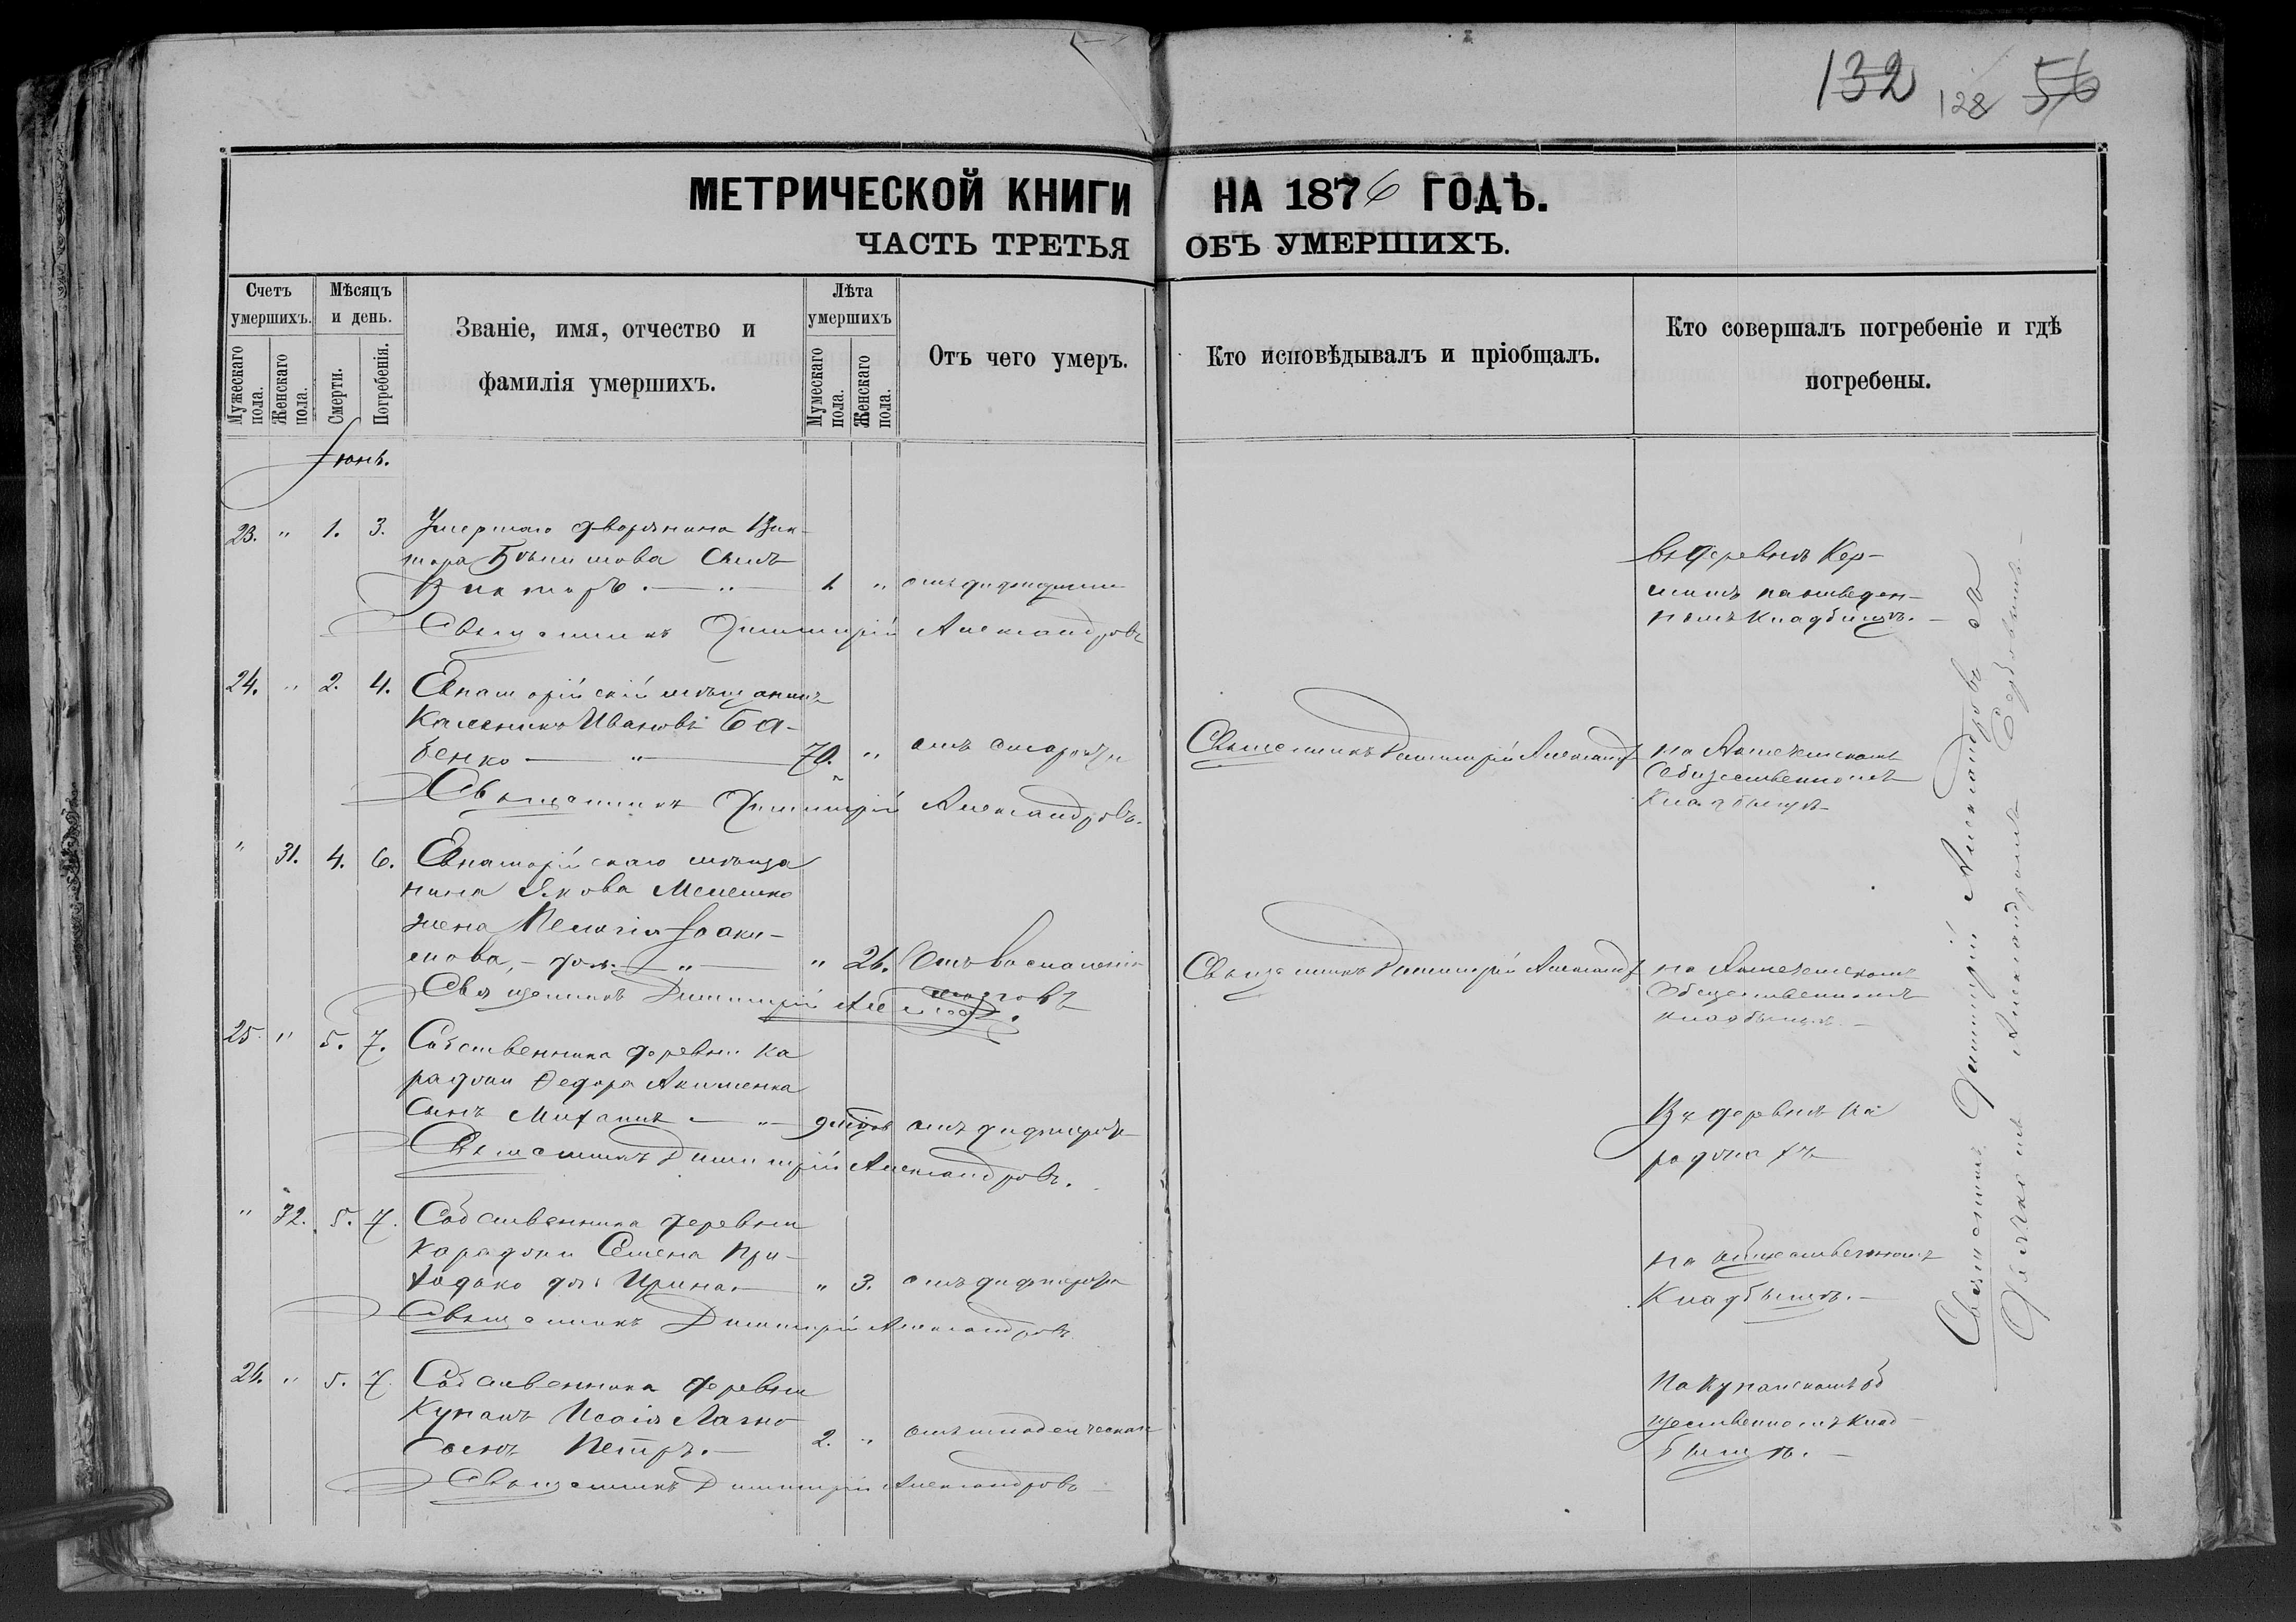 132 128 56
МЕТРИЧЕСКОЙ КНИГИ НА 1876 ГОДЪ.
ЧАСТЬ ТРЕТЬЯ ОБЪ УМЕРШИХЪ.
Счетъ умершихъ.
Мужескаго пола.
Женскаго пола.
Мѣсяцъ и день.
Смерти.
Погребенія.
Званіе, имя, отчество и
фамилія умершихъ.
Лѣта умершихъ
Мужескаго пола.
Женскаго пола.
Отъ чего умеръ.
Кто исповѣдывалъ и пріобщалъ.
Кто совершалъ погребеніе и гдѣ
погребены.
Іюнь.
23. " 1. 3. Умершаго дворянина Вик-
тора сынъ
Викторъ. — " — 1 "
въ деревнѣ Кер-
кладбищѣ.
Священникъ Димитрій Александровъ
24. " 2. 4. Евпаторійскій мѣщанинъ
Каленикъ Ивановъ Ба-
бенко — " — 70. " отъ старости
Священникъ Димитрій Александр
на
общественномъ
кладбищѣ
Священникъ Димитрій Александровъ.
" 31. 4. 6. Евпаторійскаго мѣща
нина Якова Мелешко
жена Пелагія Іоаки-
мова, — " — " 26. отъ воспаленія
Священникъ Димитрій Александр
на
общественномъ
кладбищѣ. —
Священникъ Димитрій
25. " 5. 7. Собственника деревни Ка
раджи Федора Акименка
сынъ Михаилъ — " — отъ дифтерита
Въ деревнѣ Ка
раджа хъ
Священникъ Димитрій Александровъ.
" 32. 5. 7. Собственника деревни
Караджи Семена При-
ходько дочь Ирина — " 3. отъ дифтерита
на общественномъ
кладбищѣ. —
Священникъ Димитрій Александровъ
26. " 5. 7. Собственника деревни
Кунанъ Исаія Лагно
сынъ Петръ. — 2. "
На Кунанскомъ об
щественномъ клад
бищѣ. —
Священникъ Димитрій Александровъ
Священникъ Димитрій Александровъ съ
Дьячкомъ Александромъ